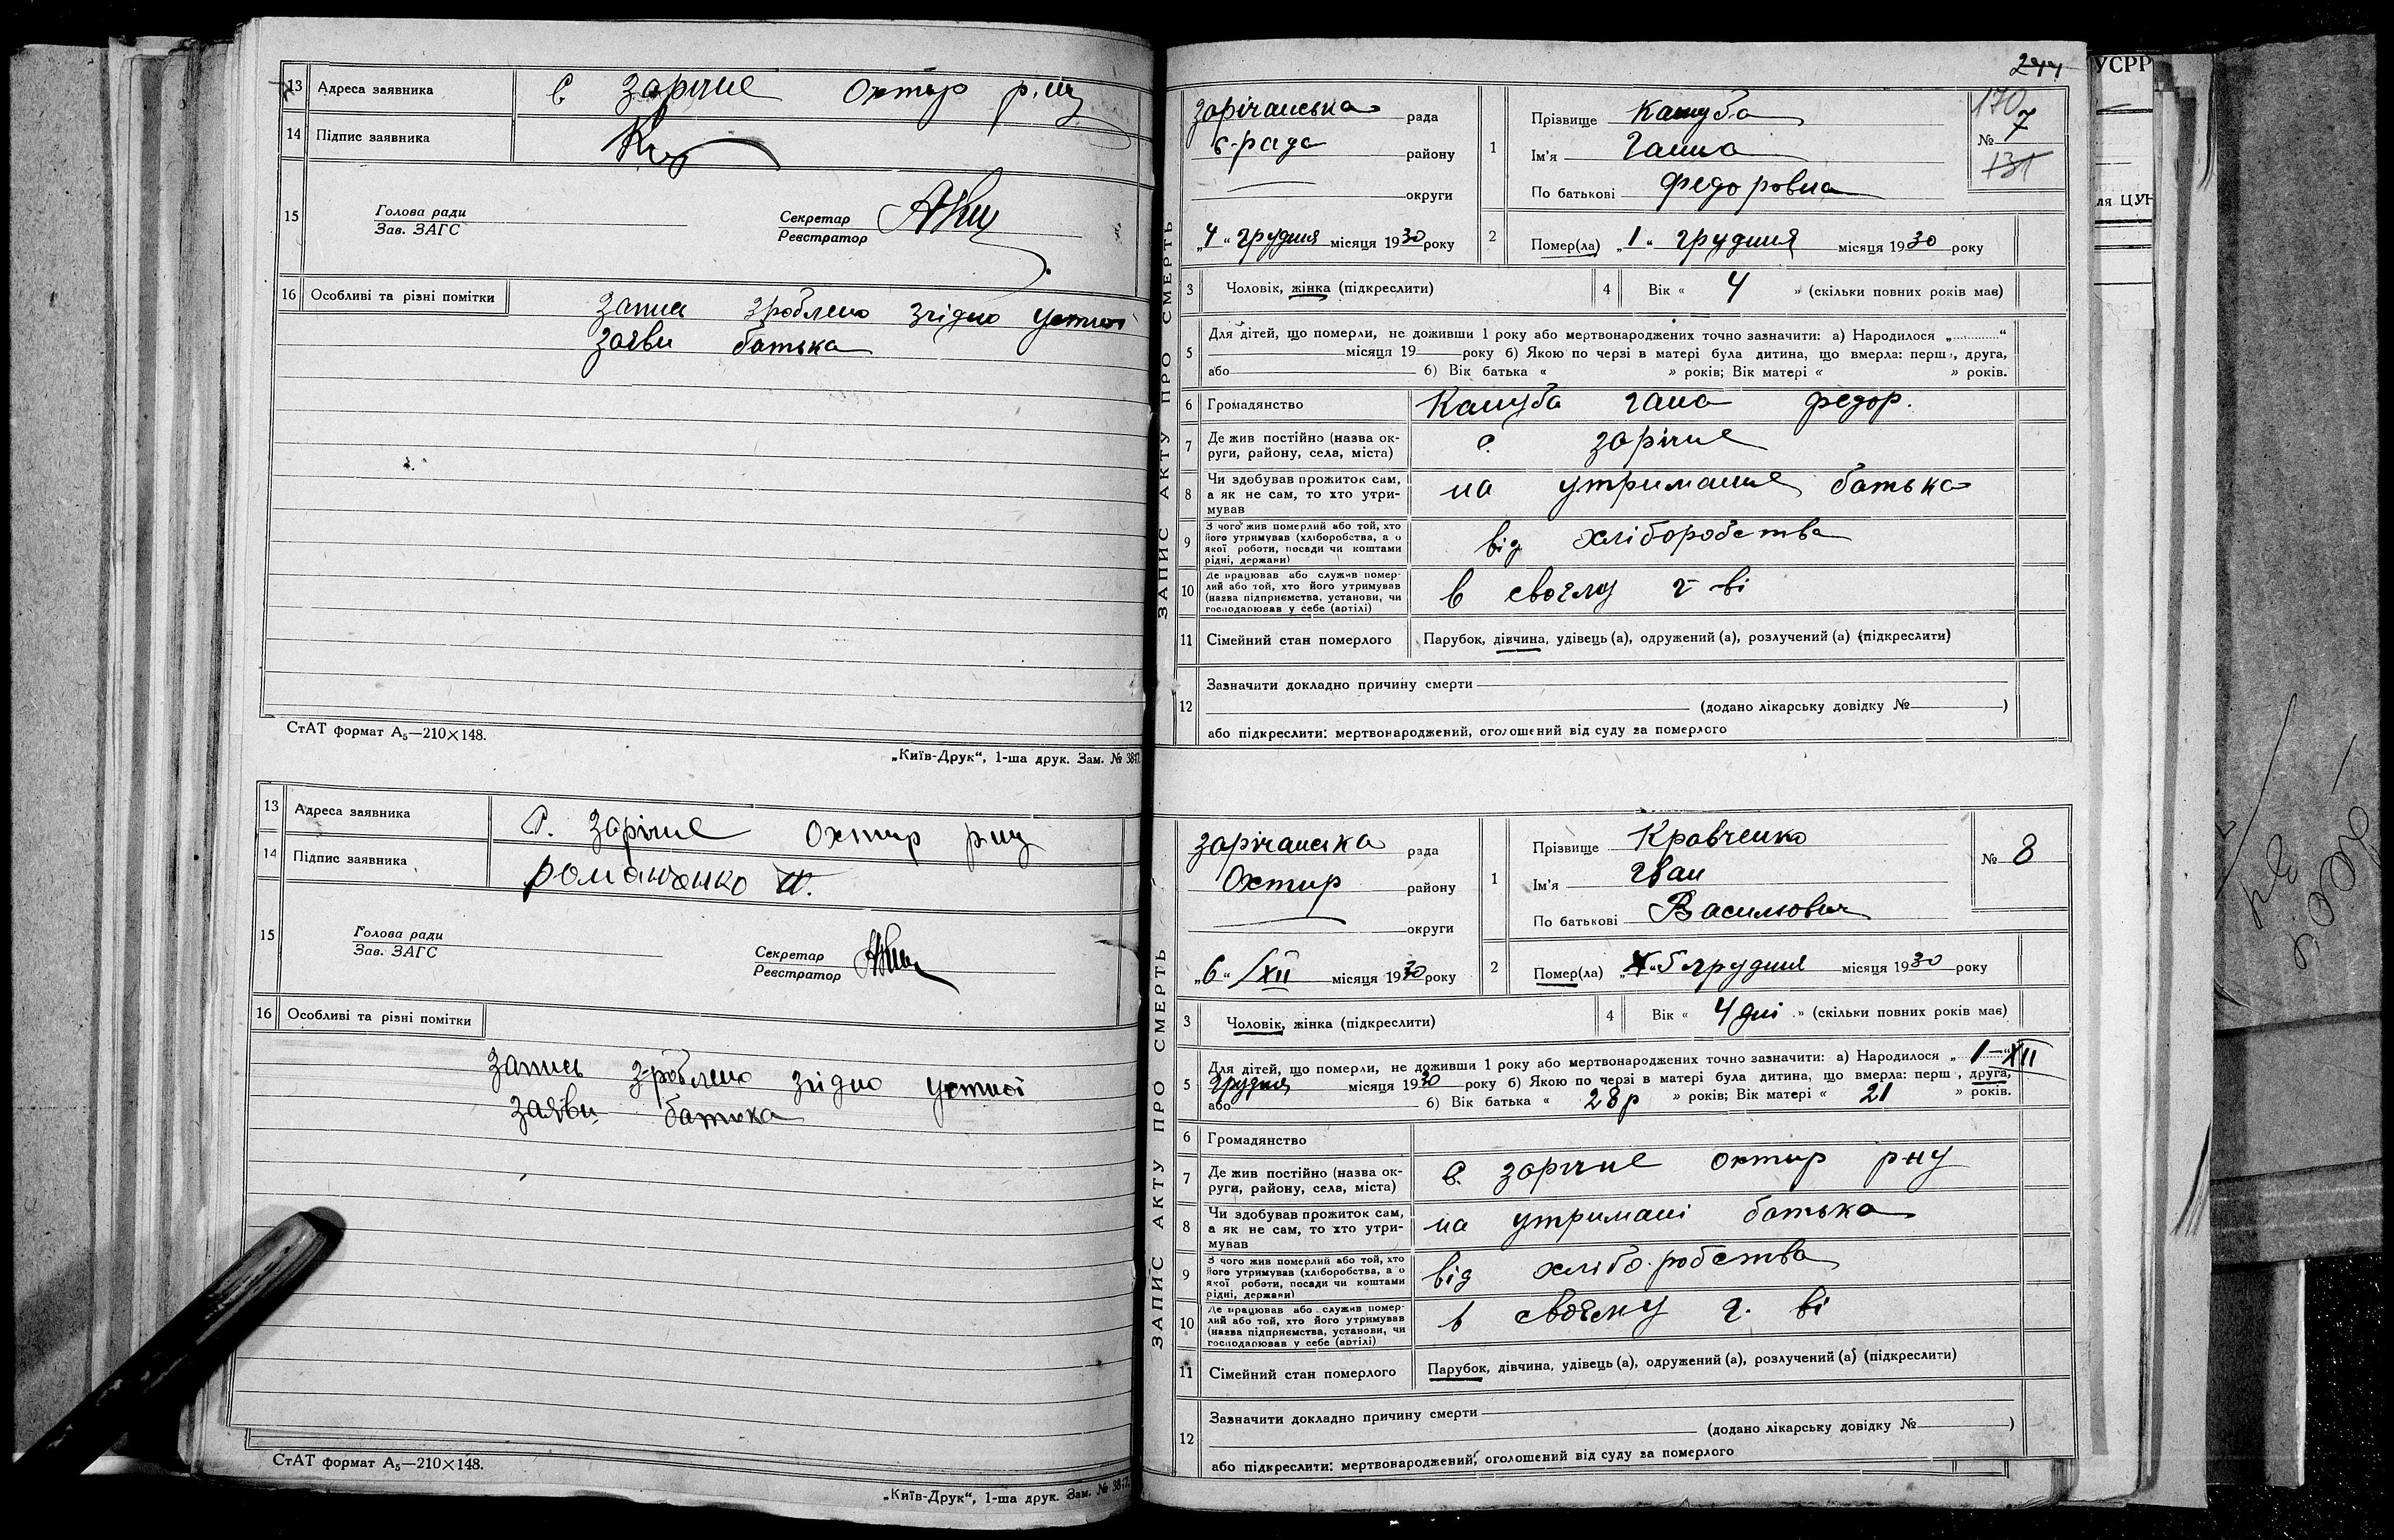 13 Адреса заявника С Зарічне Охтир р.ну
14 Підпис заявника
15 Голова ради Зав. ЗАГС Секретар Реєстратор
16 Особливі та різні помітки
Запись зроблено згідно устної
заяви батька
СтАТ формат А5—210×148.
„Київ-Друк“, 1-ша друк. Зам. № 3817.
13 Адреса заявника С. Зарічне Охтир р-ну
14 Підпис заявника Романченко
15 Голова ради Зав. ЗАГС Секретар Реєстратор
16 Особливі та різні помітки
Запись зроблено згідно устної
заяви батька
СтАТ формат А5—210×148.
„Київ-Друк“, 1-ша друк. Зам. № 3817.
244
УСРР
ля ЦУН
ЗАПИС АКТУ ПРО СМЕРТЬ
Зарічанська рада
с-рада району
округи
„4“ грудня місяця 1930 року
1 Прізвище Кашуба
Ім'я Ганна
По батькові Федоровна
170
№ 7
131
2 Помер(ла) „1“ грудня місяця 1930 року
3 Чоловік, жінка (підкреслити)
4 Вік « 4 » (скільки повних років має)
5 Для дітей, що померли, не доживши 1 року або мертвонароджених точно зазначити: а) Народилося „............“
місяця 19 року б) Якою по черзі в матері була дитина, що вмерла: перш , друга,
або б) Вік батька « » років; Вік матері « » років.
6 Громадянство Кашуба Гана Федор.
7 Де жив постійно (назва округи, району, села, міста) с. Зарічне
8 Чи здобував прожиток сам, а як не сам, то хто утримував на утриманне батька
9 З чого жив померлий або той, хто його утримував (хліборобства, а о якої роботи, посади чи коштами рідні, держави) від хліборобства
10 Де працював або служив померлий або той, хто його утримував (назва підприємства, установи, чи господарював у себе (артілі) в своєму г-ві
11 Сімейний стан померлого Парубок, дівчина, удівець (а), одружений (а), розлучений (а) (підкреслити)
12 Зазначити докладно причину смерти
(додано лікарську довідку № )
або підкреслити: мертвонароджений, оголошений від суду за померлого
ЗАПИС АКТУ ПРО СМЕРТЬ
Зарічанська рада
Охтир району
округи
„6“ XII місяця 1930 року
1 Прізвище Кравченко
Ім'я Іван
По батькові Василювич
№ 8
2 Помер(ла) 5 грудня місяця 1930 року
3 Чоловік, жінка (підкреслити)
4 Вік « 4 дні » (скільки повних років має)
5 Для дітей, що померли, не доживши 1 року або мертвонароджених точно зазначити: а) Народилося „1—XII
грудня місяця 1930 року б) Якою по черзі в матері була дитина, що вмерла: перш , друга,
або б) Вік батька « 28 р » років; Вік матері « 21 » років.
6 Громадянство
7 Де жив постійно (назва округи, району, села, міста) с. Зарічне Охтир р-ну
8 Чи здобував прожиток сам, а як не сам, то хто утримував на утримані батька
9 З чого жив померлий або той, хто його утримував (хліборобства, а о якої роботи, посади чи коштами рідні, держави) від хліборобства
10 Де працював або служив померлий або той, хто його утримував (назва підприємства, установи, чи господарював у себе (артілі) в своєму г. ві
11 Сімейний стан померлого Парубок, дівчина, удівець (а), одружений (а), розлучений (а) (підкреслити)
12 Зазначити докладно причину смерти
(додано лікарську довідку № )
або підкреслити: мертвонароджений, оголошений від суду за померлого